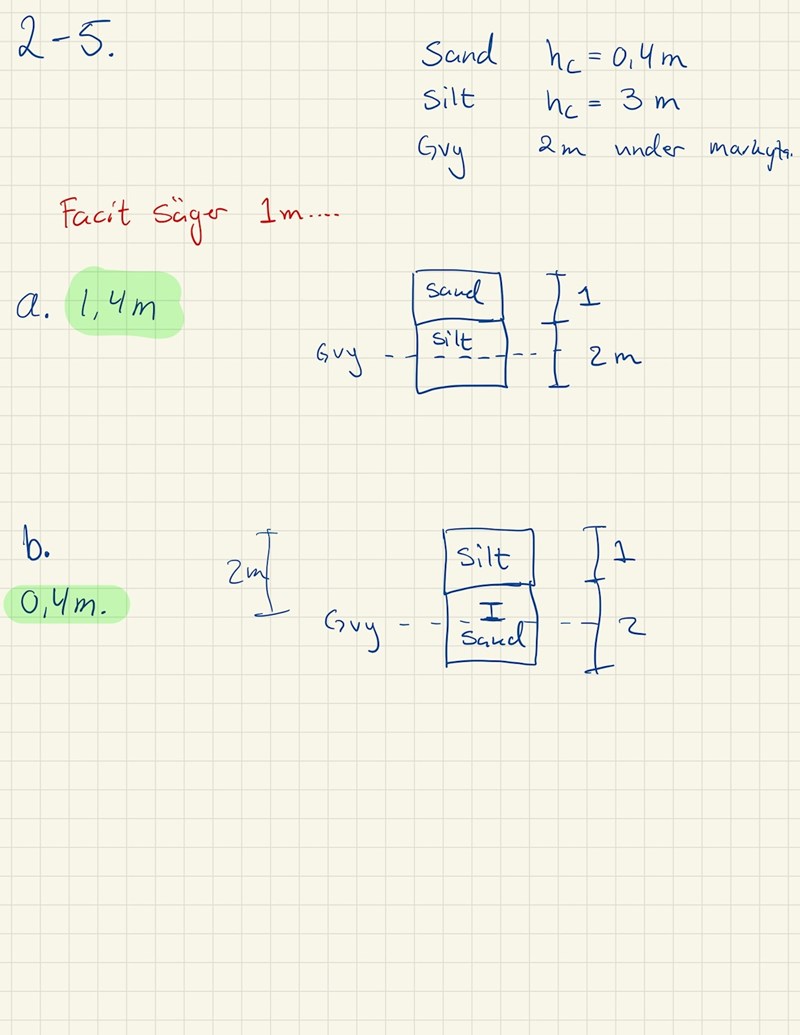 2-5.
Sand hc = 0,4 m
Silt hc = 3 m
Gvy 2m under markyta.
Facit säger 1m....
a. 1,4m
Sand 1
Silt
Gvy 2 m
b.
Silt 1
2m
0,4m.
Gvy 2
Sand